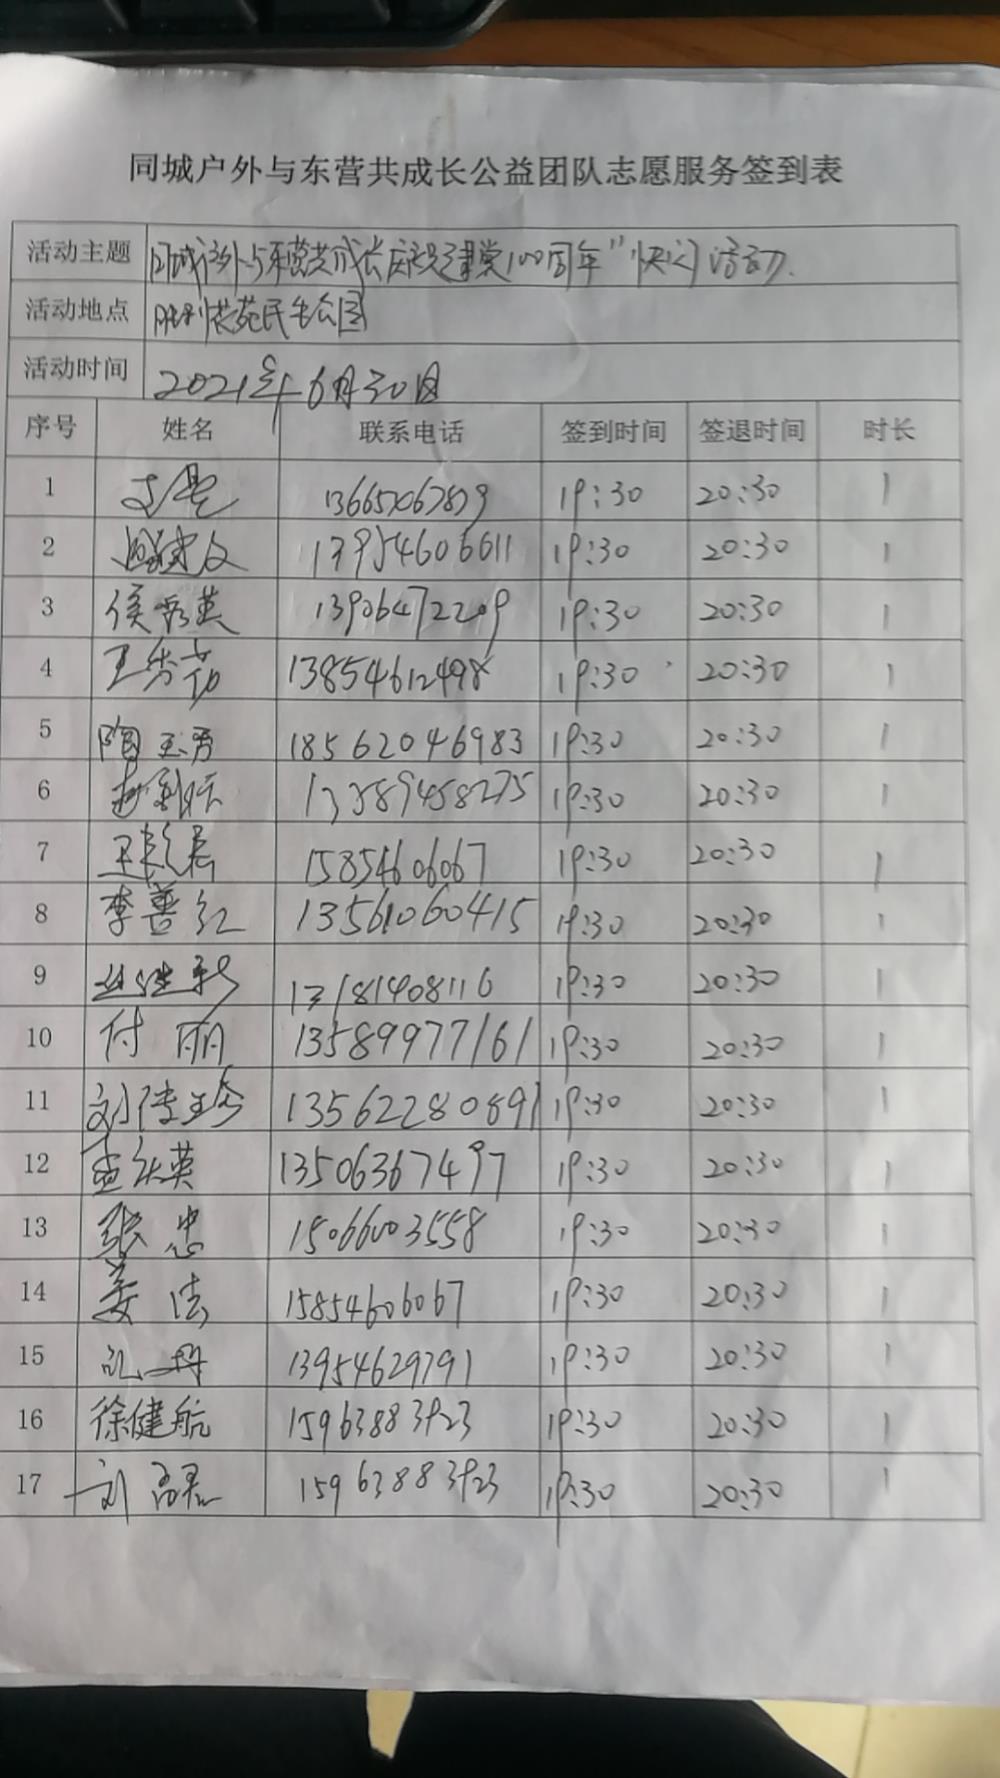 同城户外与东营共成长公益团队志愿服务签到表
活动主题 同城户外与东营共成长庆祝建党100周年"快闪活动.
活动地点 胜利花苑民生公园
活动时间 2021年6月30日
序号 姓名 联系电话 签到时间 签退时间 时长
1 19:30 20:30 1
2 13954606611 19:30 20:30 1
3 侯秀英 13906472209 19:30 20:30 1
4 王秀芬 13854612498 19:30 20:30 1
5 陶玉秀 18562046983 19:30 20:30 1
6 13589458275 19:30 20:30 1
7 15854606067 19:30 20:30 1
8 李善红 13561060415 19:30 20:30 1
9 13181408116 19:30 20:30 1
10 付丽 13589977161 19:30 20:30 1
11 13562280891 19:30 20:30 1
12 13506367497 19:30 20:30 1
13 张忠 15066003558 19:30 20:30 1
14 姜洁 15854606067 19:30 20:30 1
15 13954629791 19:30 20:30 1
16 徐健航 15963883923 19:30 20:30 1
17 15963883923 19:30 20:30 1